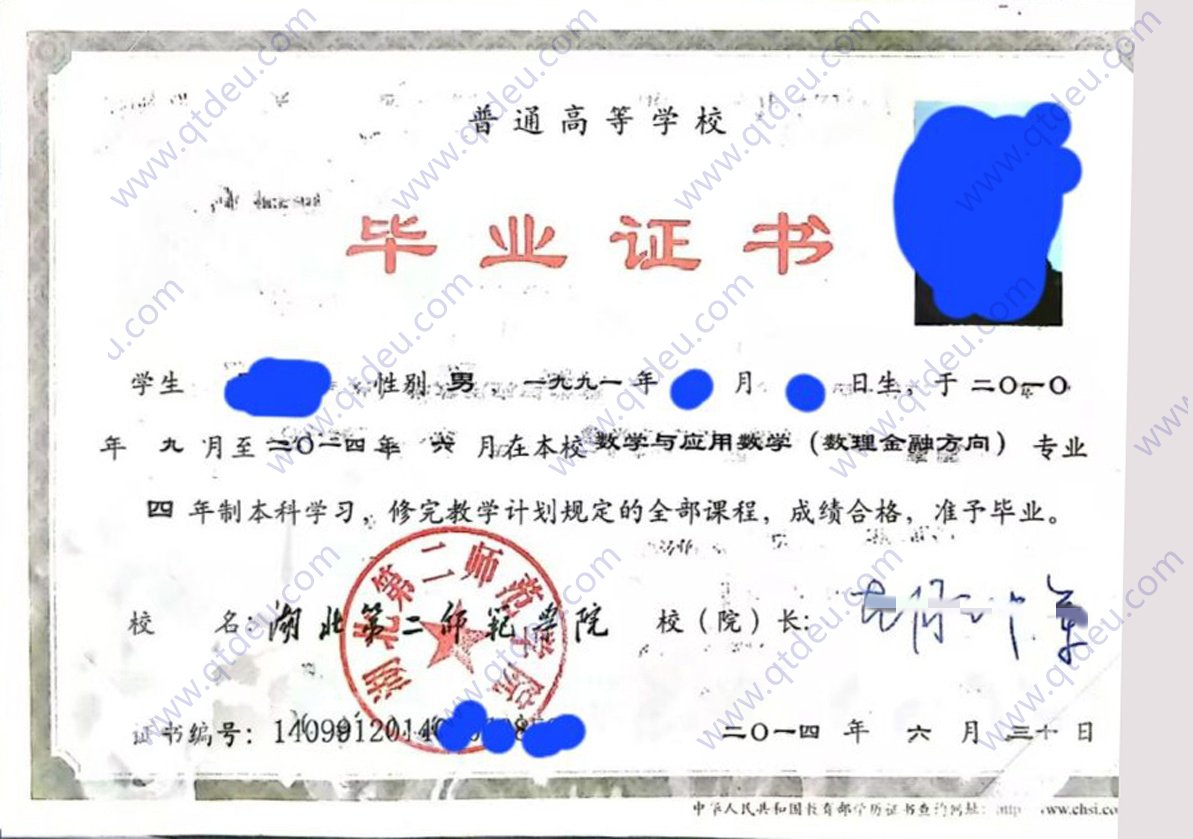 普通高等学校
毕业证书
学生 ，性别 男，一九九一年 月 日生，于 二〇一〇
年 九 月至 二〇一四年 六 月在本校 数学与应用数学（数理金融方向） 专业
四 年制本科学习，修完教学计划规定的全部课程，成绩合格，准予毕业。
校 名：湖北第二师范学院 校（院）长：
湖北第二师范学院
证书编号：14099120140 二〇一四 年 六 月 三十 日
中华人民共和国教育部学历证书查询网址：http www.chsi.co
www.qtdeu.com
www.qtdeu.com
www.qtdeu.com
www.qtdeu.com
u.com
www.qtdeu.com
www.qtdeu.com
www.qtdeu.com
www
www.qtdeu.com
www.qtdeu.com
www.qtdeu.com
www.qtdeu.com